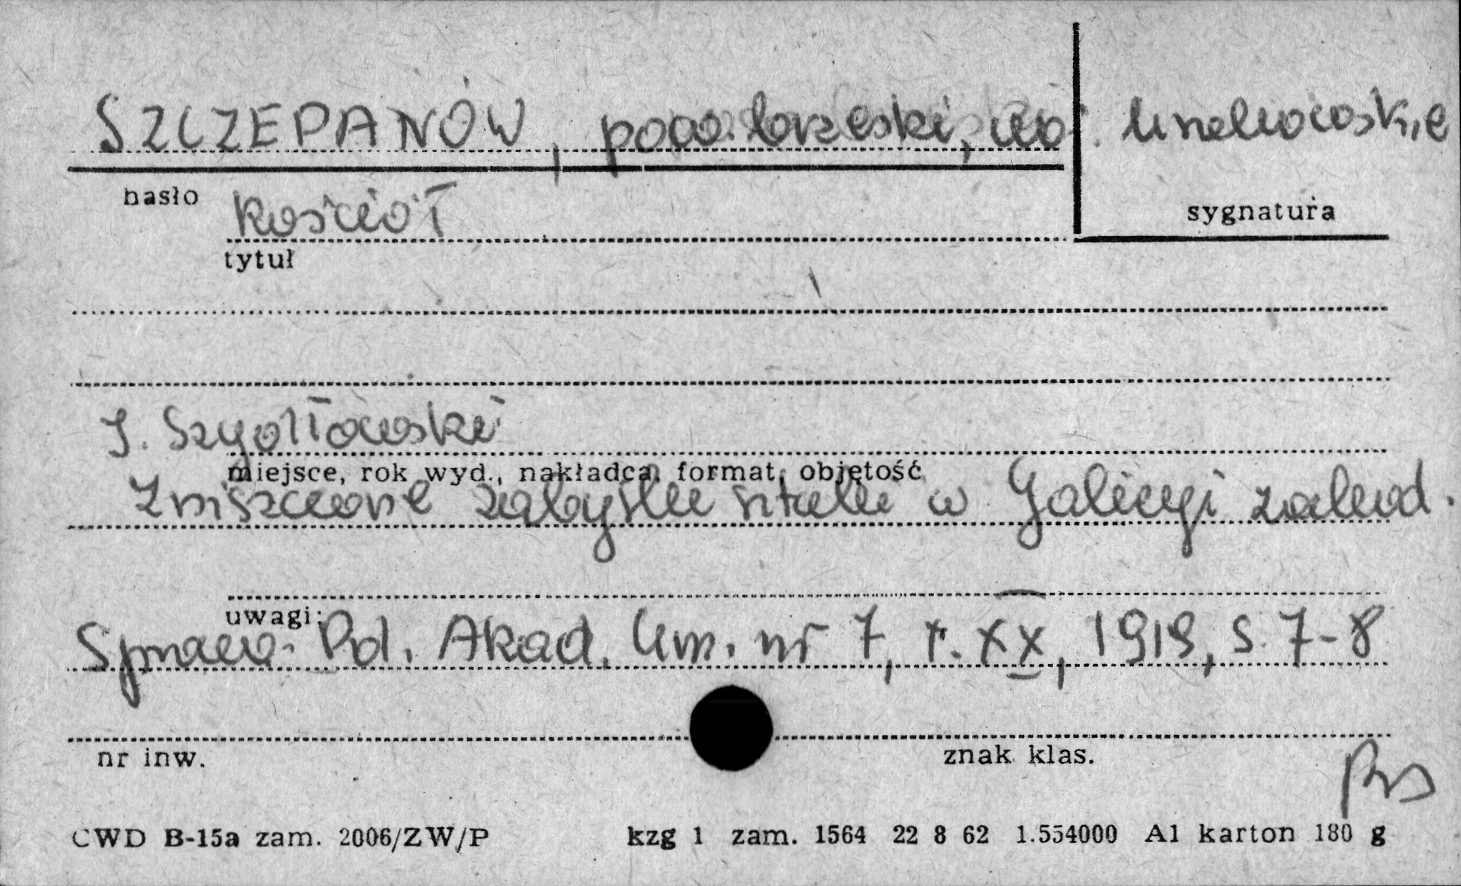 SZCZEPANÓW, pow. brzeski, woj. krakowskie
hasło
sygnatura
kościół
tytuł
J. Szydłowski
miejsce, rok wyd., nakładca, format, objętość
Zniszczone zabytki sztuki w Galicyi zachod.
uwagi:
Spraw. Pol. Akad. Um. nr 7, t. XX, 1919, s. 7-8
nr inw.
znak klas.
CWD B-15a zam. 2006/ZW/P kzg 1 zam. 1564 22 8 62 1.554000 A1 karton 180 g